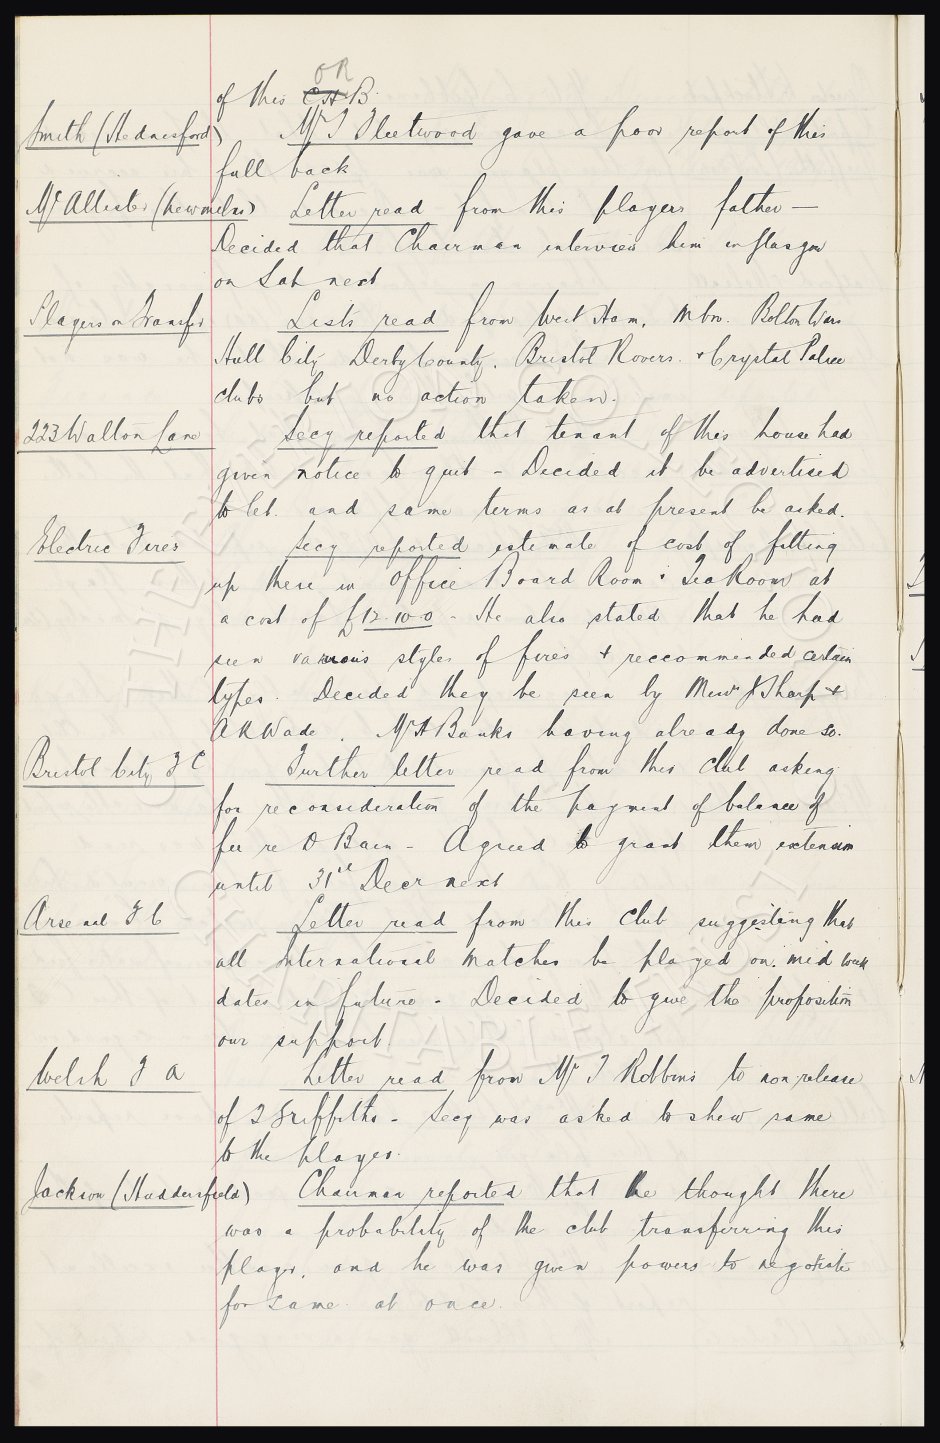 of this C H B. OR
Smith (Hednesford) Mr J Fleetwood gave a poor report of this
full back
McAllister (Newmilns) Letter read from this players father —
Decided that Chairman interview him in Glasgow
on Sat next
Players on Transfer Lists read from West Ham, Mbro. Bolton Wans
Hull City Derby County. Bristol Rovers. & Crystal Palace
clubs but no action taken.
223 Walton Lane Secy reported that tenant of this house had
given notice to quit - Decided it be advertised
to let. and same terms as at present be asked.
Electric Fires Secy reported estimate of cost of fitting
up these in Office Board Room & Tea Room at
a cost of £12-10-0 - He also stated that he had
seen various styles of fires & reccommended certain
types. Decided they be seen by Messrs J Sharp &
A R Wade. Mr A Banks having already done so.
Bristol City F C Further letter read from this club asking
for reconsideration of the payment of balance of
fee re D Bain - Agreed to grant them extension
until 31st Decr next
Arsenal F C Letter read from this club suggesting that
all International matches be played on mid week
dates in future - Decided to give the proposition
our support.
Welsh F A Letter read from Mr T Robbins to non release
of T Griffiths - Secy was asked to shew same
to the player.
Jackson (Huddersfield) Chairman reported that he thought there
was a probability of the club transferring this
player, and he was given powers to negotiate
for same at once.